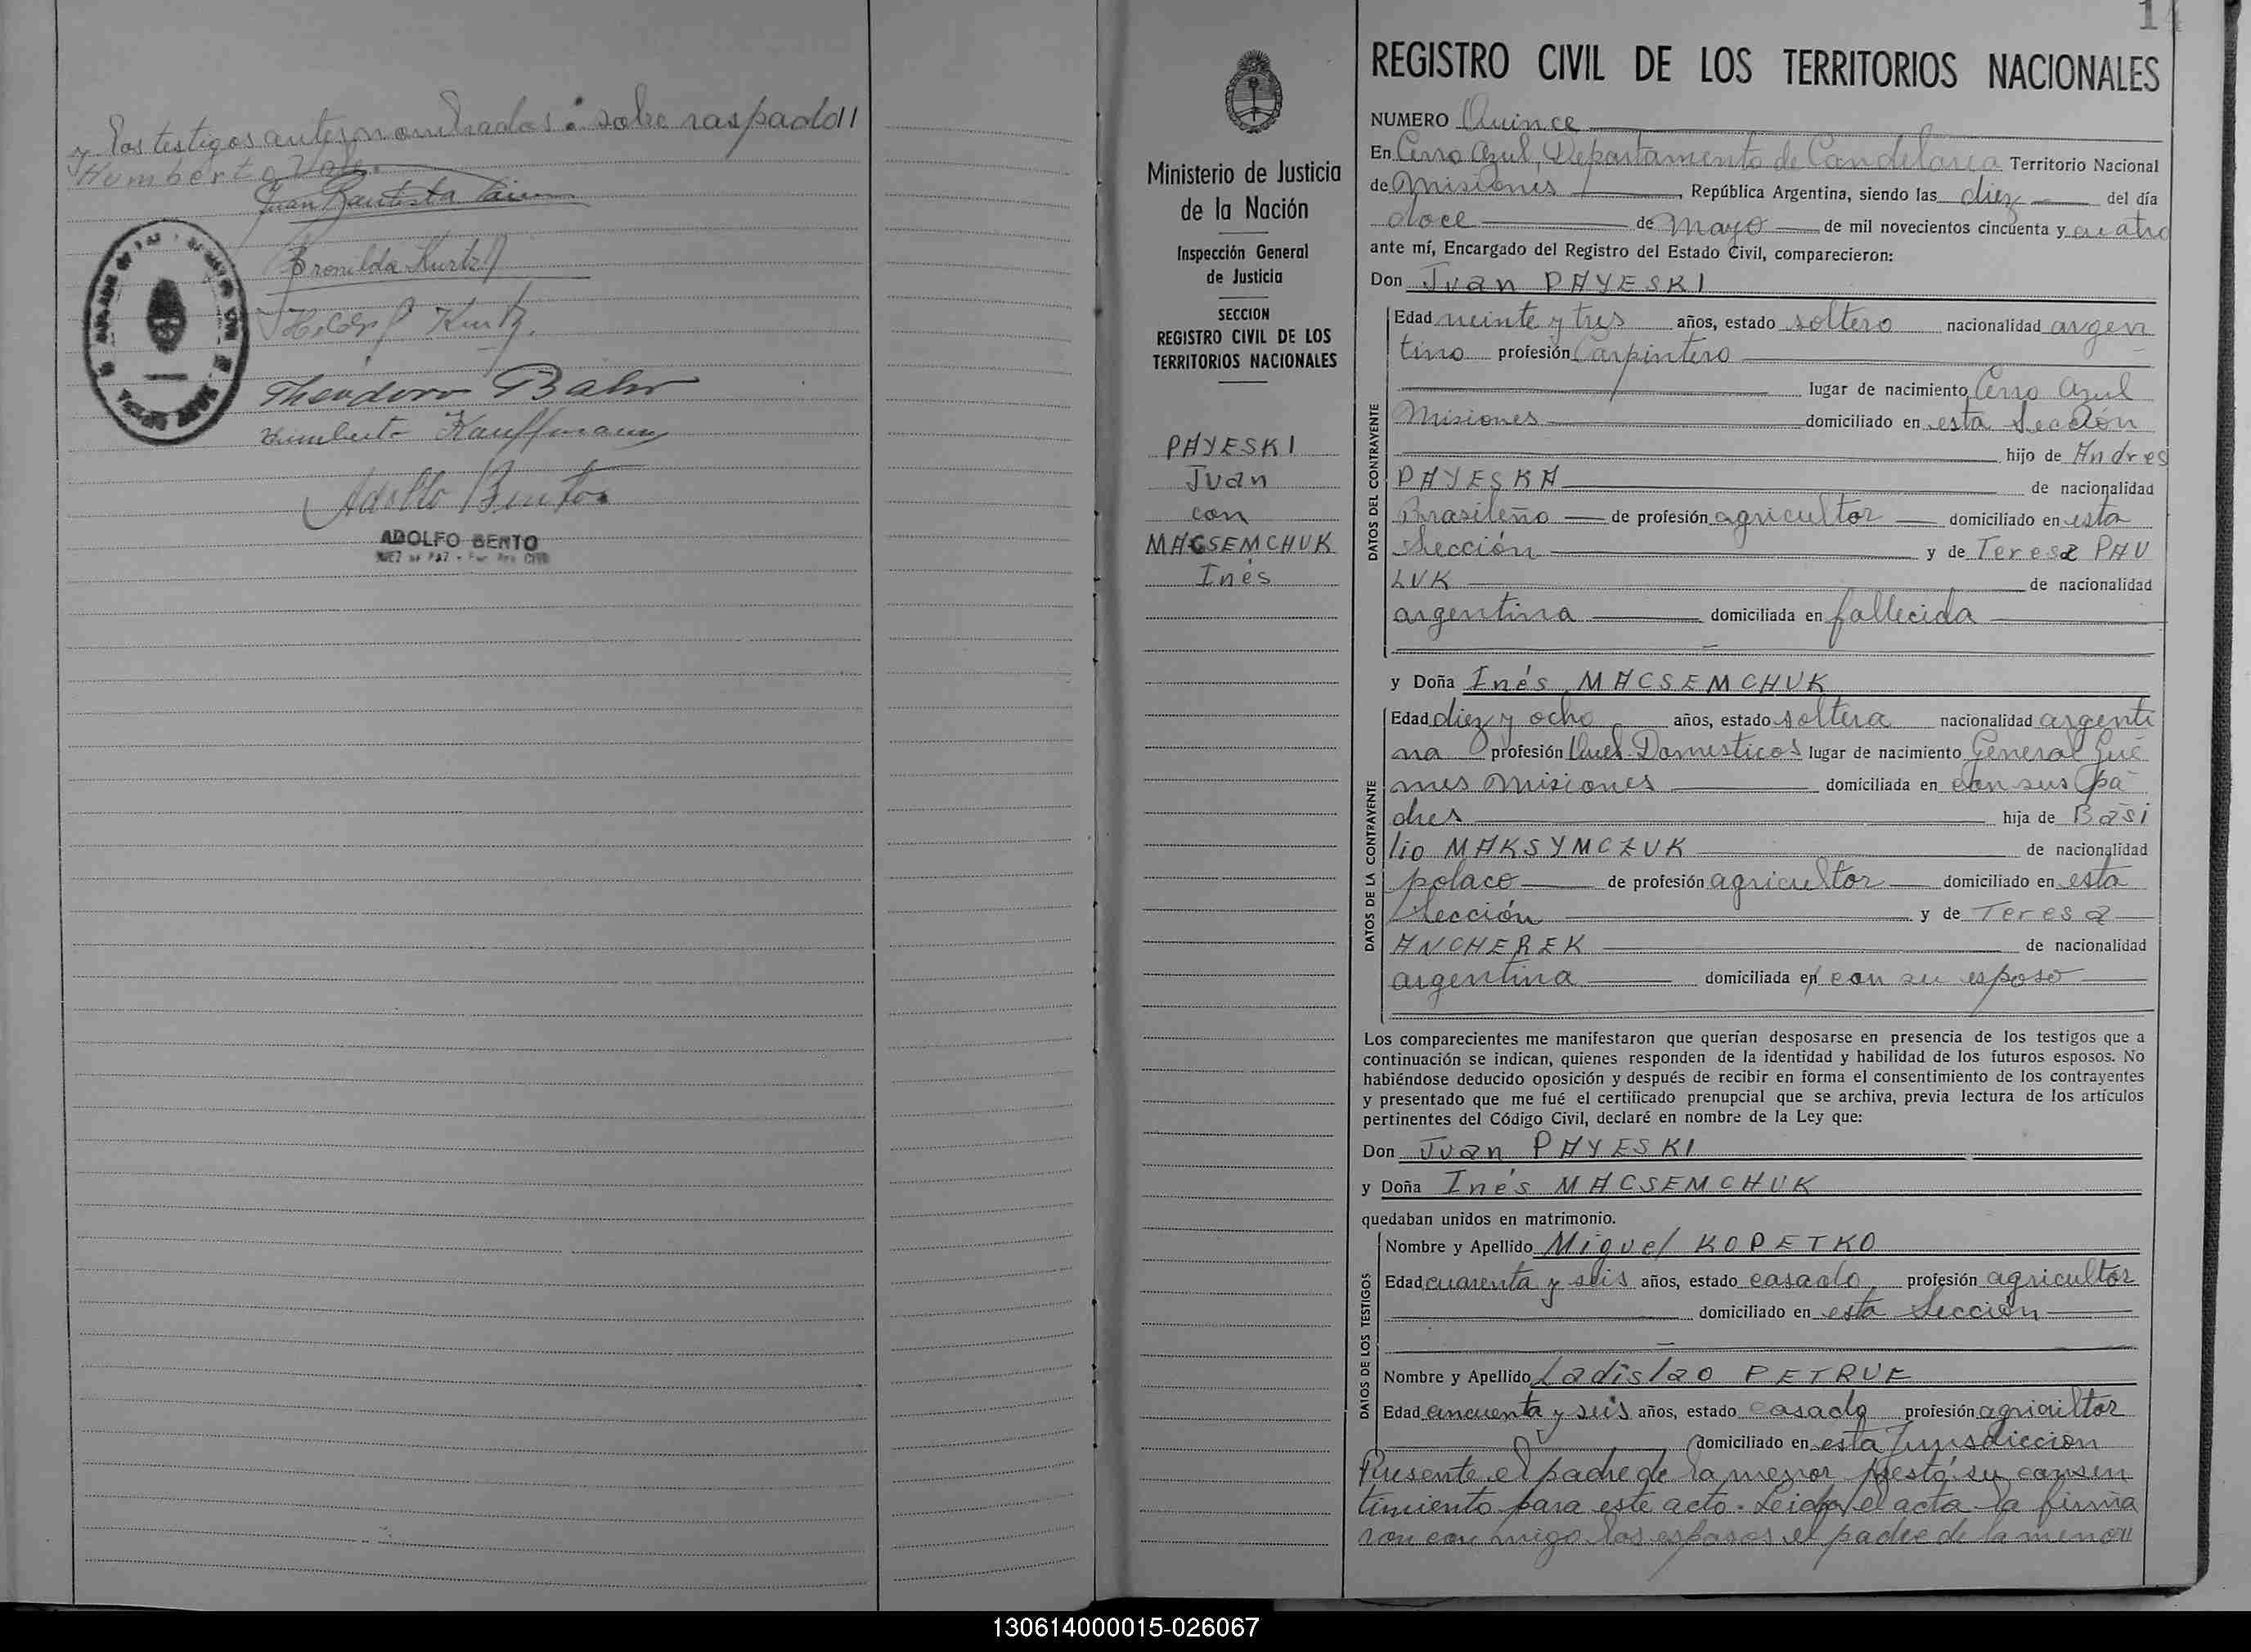 y los testigos antes nombrados: sobre raspado//
Humberto
Juan Bautista
Bronilda Kurtz
Kurtz.
Theodoro Bahr
Humberto Kauffmann
Adolfo Bento
ADOLFO BENTO
JUEZ DE PAZ
Ministerio de Justicia
de la Nación
Inspección General
de Justicia
SECCION
REGISTRO CIVIL DE LOS
TERRITORIOS NACIONALES
PAYESKI
Juan
con
MACSEMCHUK
Inés
1
REGISTRO CIVIL DE LOS TERRITORIOS NACIONALES
NUMERO Quince
En Cerro Azul, Departamento de Candelaria Territorio Nacional
de Misiones, República Argentina, siendo las diez del día
doce de Mayo de mil novecientos cincuenta y cuatro
ante mí, Encargado del Registro del Estado Civil, comparecieron:
Don Juan PAYESKI
DATOS DEL CONTRAYENTE
Edad veinte y tres años, estado soltero nacionalidad argen
tino profesión Carpintero
lugar de nacimiento Cerro Azul
Misiones domiciliado en esta Sección
hijo de Andres
PAYESKA de nacionalidad
Brasileño de profesión agricultor domiciliado en esta
Sección y de Teresa PAU
LUK de nacionalidad
argentina domiciliada en fallecida
y Doña Inés MACSEMCHUK
DATOS DE LA CONTRAYENTE
Edad diez y ocho años, estado soltera nacionalidad argenti
na profesión Queh. Domesticos lugar de nacimiento General Güe
mes Misiones domiciliada en con sus pa
dres hija de Basi
lio MAKSYMCZUK de nacionalidad
polaco de profesión agricultor domiciliado en esta
Sección y de Teresa
ANCHEREK de nacionalidad
argentina domiciliada en con su esposo
Los comparecientes me manifestaron que querían desposarse en presencia de los testigos que a
continuación se indican, quienes responden de la identidad y habilidad de los futuros esposos. No
habiéndose deducido oposición y después de recibir en forma el consentimiento de los contrayentes
y presentado que me fué el certificado prenupcial que se archiva, previa lectura de los artículos
pertinentes del Código Civil, declaré en nombre de la Ley que:
Don Juan PAYESKI
y Doña Inés MACSEMCHUK
quedaban unidos en matrimonio.
DATOS DE LOS TESTIGOS
Nombre y Apellido Miguel KOPETKO
Edad cuarenta y seis años, estado casado profesión agricultor
domiciliado en esta Sección
Nombre y Apellido Ladislao PETRUF
Edad cincuenta y seis años, estado casado profesión agricultor
domiciliado en esta Jurisdicción
Presente el padre de la menor presta su consen
timiento para este acto. Leida el acta la firma
ron conmigo los esposos el padre de la menor//
130614000015-026067